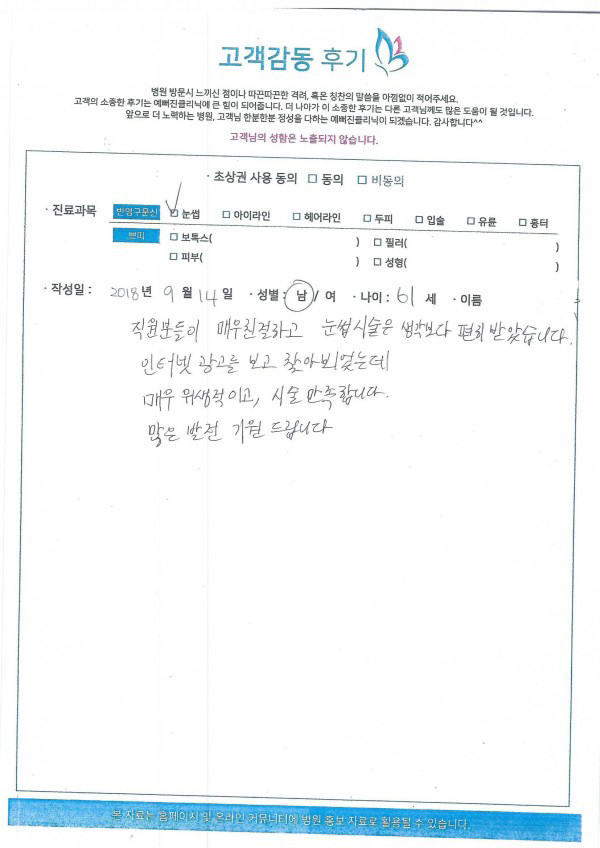 고객감동 후기
병원 방문시 느끼신 점이나 따끈따끈한 격려, 혹은 칭찬의 말씀을 아낌없이 적어주세요.
고객의 소중한 후기는 예뻐진클리닉에 큰 힘이 되어줍니다. 더 나아가 이 소중한 후기는 다른 고객님께도 많은 도움이 될 것입니다.
앞으로 더 노력하는 병원, 고객님 한분한분 정성을 다하는 예뻐진클리닉이 되겠습니다. 감사합니다^^
고객님의 성함은 노출되지 않습니다.
· 초상권 사용 동의 □ 동의 □ 비동의
· 진료과목 반영구문신 □ 눈썹 □ 아이라인 □ 헤어라인 □ 두피 □ 입술 □ 유륜 □ 흉터
쁘띠 □ 보톡스( ) □ 필러( )
□ 피부( ) □ 성형( )
· 작성일 : 2018년 9월 14일 · 성별 : 남 / 여 · 나이 : 61 세 · 이름
직원분들이 매우친절하고 눈썹시술은 생각보다 편히 받았습니다.
인터넷 광고를 보고 찾아뵈었는데
매우 위생적이고, 시술 만족합니다.
많은 발전 기원 드립니다
본 자료는 홈페이지 및 온라인 커뮤니티에 병원 홍보 자료로 활용될 수 있습니다.